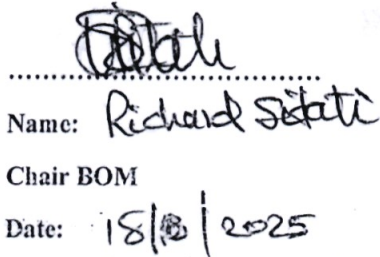 Name: Richard Sitati
Chair BOM
Date: 18/ /2025